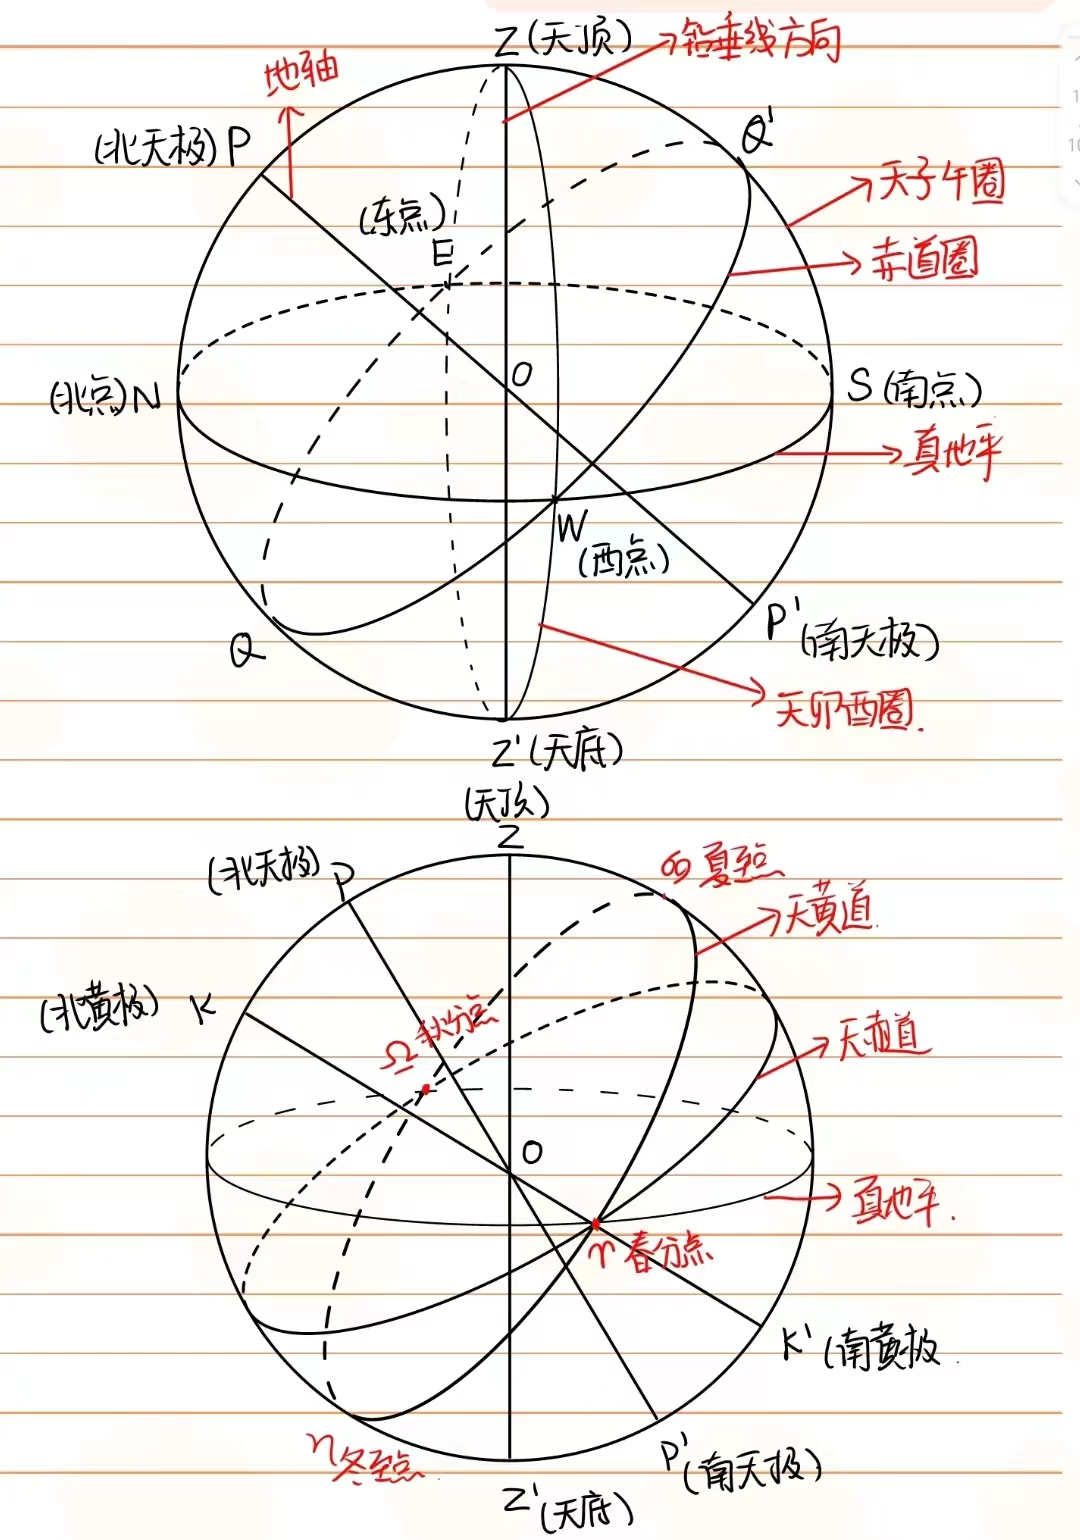 Z(天顶)
铅垂线方向
地轴
(北天极)P
Q'
天子午圈
(东点)
E
赤道圈
O
(北点)N
S(南点)
真地平
W
(西点)
P'(南天极)
Q
天卯酉圈.
Z'(天底)
(天顶)
Z
(北天极)P
♋夏至点
天黄道
(北黄极) K
♎秋分点
天赤道
O
真地平.
♈春分点
K'(南黄极
P'(南天极)
冬至点
Z'(天底)